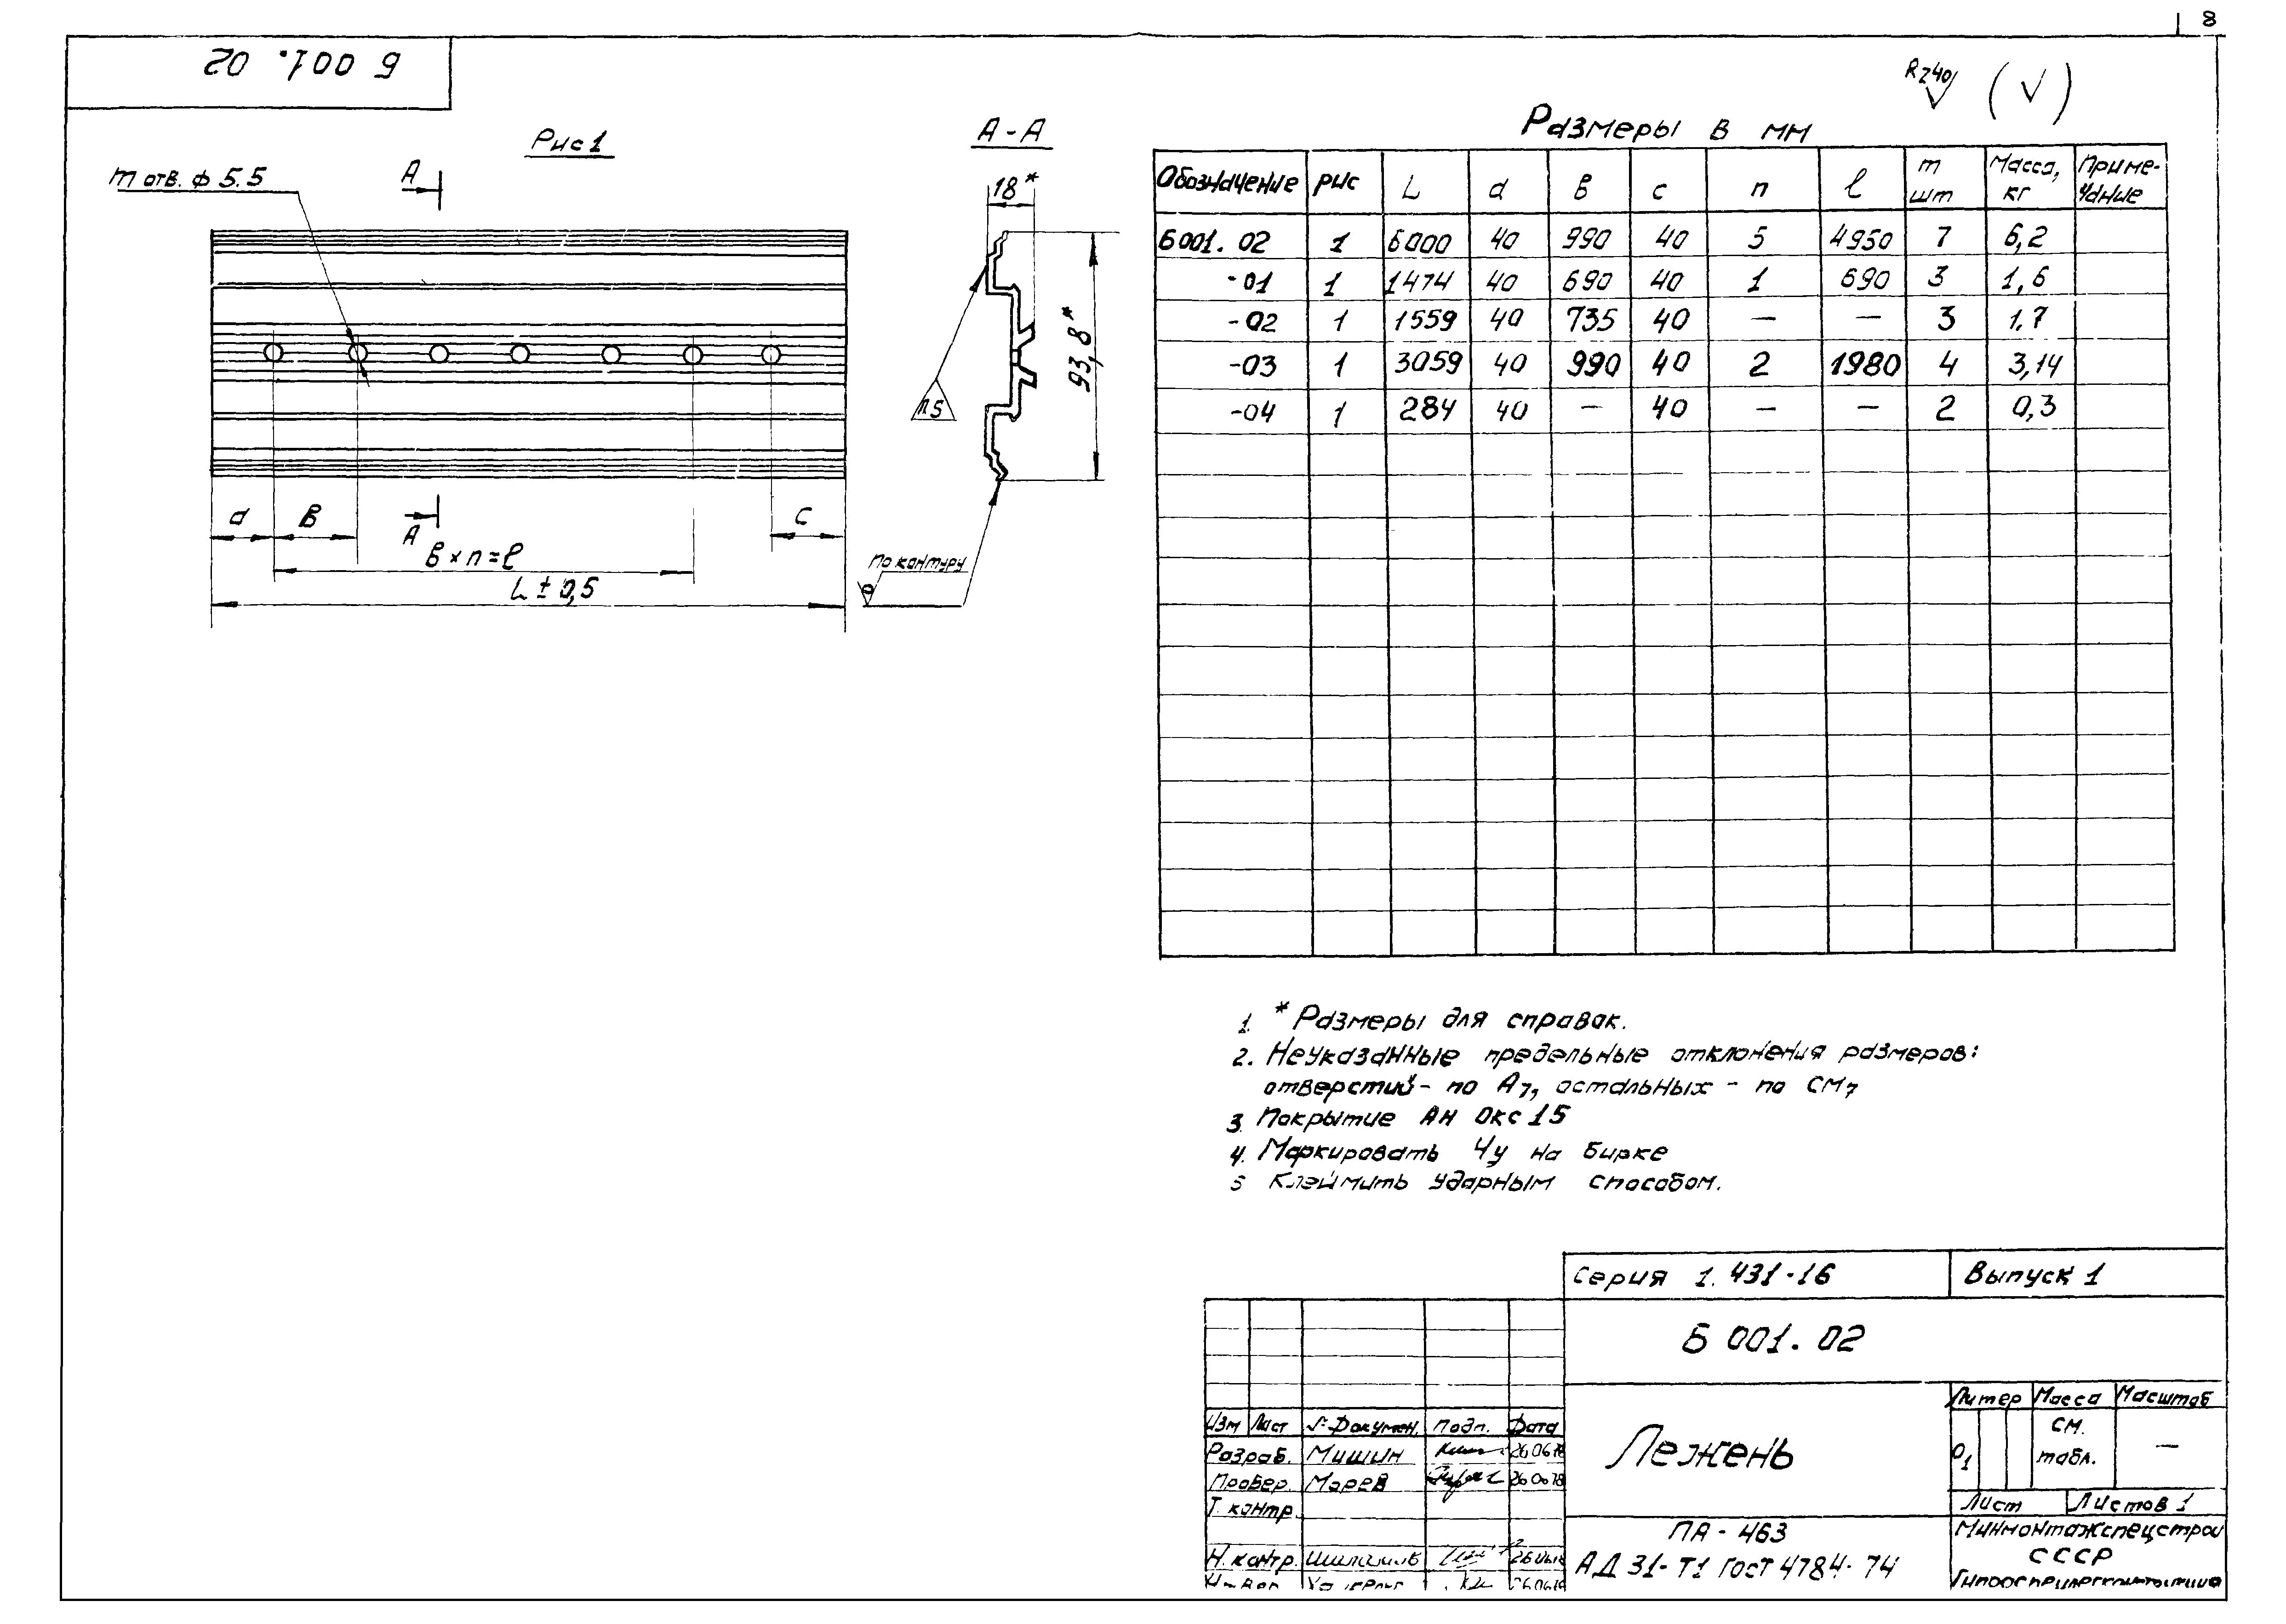 8
Б 001. 02
Rz40 (√)
Рис 1
А - А
Размеры в мм
m отв. ф 5.5
А
18*
93,8*
п5
по контуру
а
в
А
с
в × n = ℓ
L ± 0,5
Обозначение рис L а в с n ℓ m шт Масса, кг Приме-чание
Б001. 02 1 6000 40 990 40 5 4950 7 6,2
-01 1 1474 40 690 40 1 690 3 1,6
-02 1 1559 40 735 40 — — 3 1,7
-03 1 3059 40 990 40 2 1980 4 3,14
-04 1 284 40 — 40 — — 2 0,3
1. * Размеры для справок.
2. Неуказанные предельные отклонения размеров:
отверстий - по А7, остальных - по СМ7
3. Покрытие Ан Окс 15
4. Маркировать Чу на бирке
5 Клеймить ударным способом.
Серия 1. 431-16 Выпуск 1
Б 001. 02
Литер Масса Масштаб
Изм Лист № Докумен. Подп. Дата
Лежень
О1 см. табл. —
Разраб. Мишин 26.06.78
Провер. Морев 26.06.78
Т. контр.
Лист Листов 1
Н. контр.
ПА - 463
АД 31- Т1 ГОСТ 4784- 74
Минмонтажспецстрой
СССР